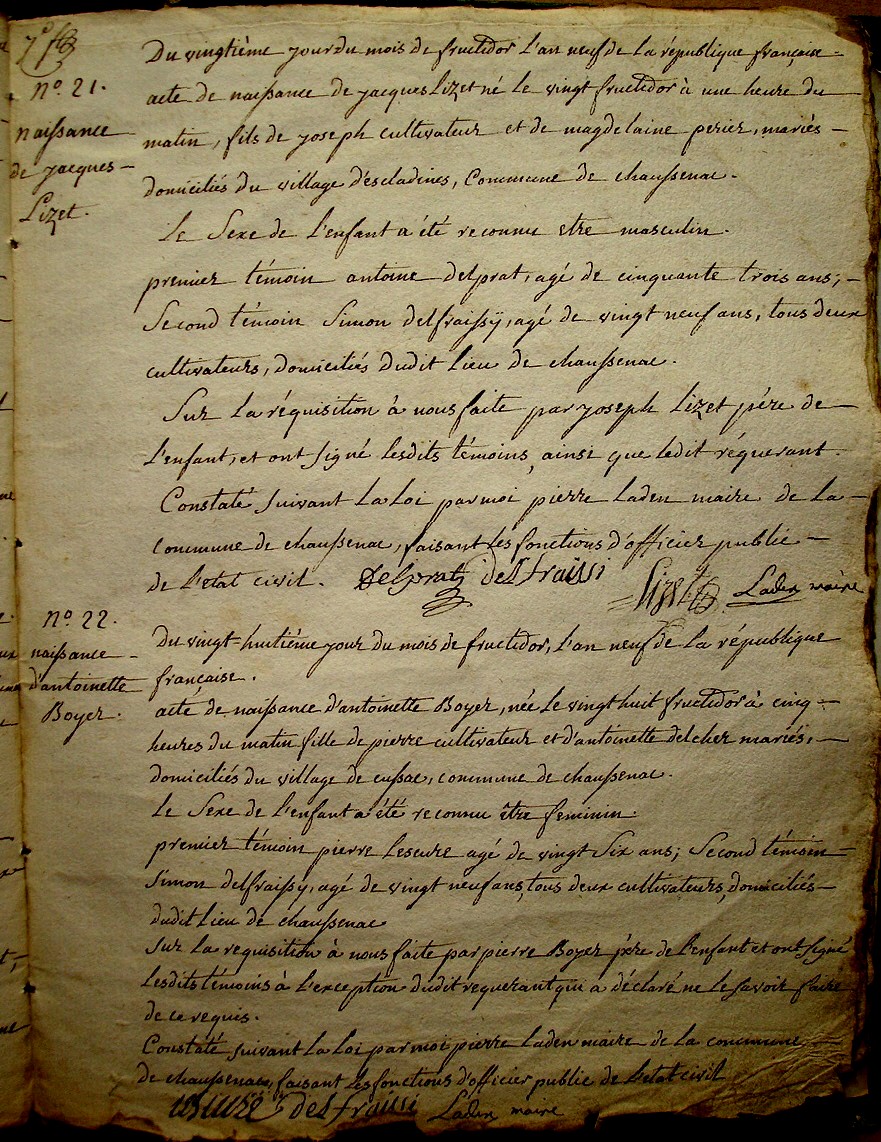 7e
nº. 21.
naissance
de jacques
Lizet.
Du vingtième jour du mois de fructidor l'an neuf de la république française
acte de naissance de jacques Lizet né le vingt fructidor à une heure du
matin, fils de joseph cultivateur et de magdelaine perier, mariés
domiciliés du village d'escladines, Commune de chaussenac.
Le Sexe de l'enfant a été reconnu etre masculin.
premier témoin antoine delprat, agé de cinquante trois ans;
Second témoin Simon delfraissÿ, agé de vingt neuf ans, tous deux
cultivateurs, domiciliés dudit Lieu de chaussenac.
Sur la réquisition à nous faite par joseph Lizet père de
l'enfant, et ont signé lesdits témoins, ainsi que ledit réquerant.
Constaté suivant La Loi par moi pierre Laden maire de la
commune de chaussenac, faisant les fonctions d'officier public
de l'etat civil. Delprat delfraissi Lizet Laden maire
nº. 22.
naissance
d'antoinette
Boyer.
Du vingt-huitième jour du mois de fructidor, l'an neuf de la république
française.
acte de naissance d'antoinette Boyer, née le vingt huit fructidor à cinq
heures du matin fille de pierre cultivateur et d'antoinette delcher mariés,
domiciliés du village de cussac, commune de chaussenac.
Le Sexe de l'enfant a été reconnu être feminin.
premier témoin pierre Leseure agé de vingt Six ans; Second témoin
Simon delfraissy, agé de vingt neuf ans, tous deux cultivateurs, domiciliés
dudit Lieu de chaussenac
Sur la requisition à nous faite par pierre Boyer père de l'enfant et ont signé
lesdits témoins à l'exception dudit requerant qui a déclaré ne le savoir faire
de ce requis.
Constaté suivant la Loi par moi pierre Laden maire de la commune
de chaussenac, faisant les fonctions d'officier public de l'etat civil
delfraissi Laden maire